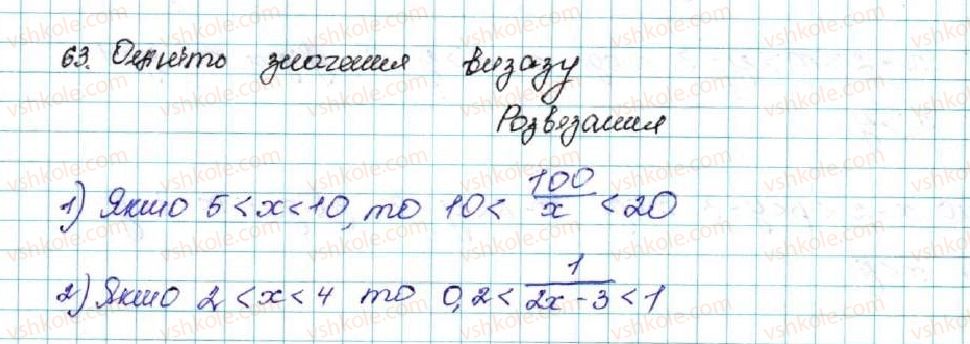 63. Оцініть значення виразу
Розвязання
1) Якщо 5 < x < 10, то 10 < 100/x < 20
2) Якщо 2 < x < 4 то 0,2 < 1/(2x - 3) < 1